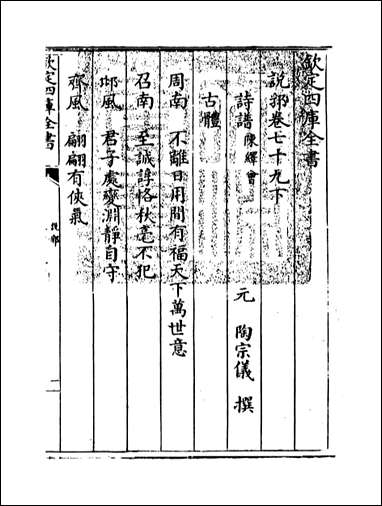 欽定四庫全書
說郛卷七十九下
元 陶宗儀 撰
詩譜 陳繹曾
古體
周南 不離日用間有福天下萬世意
召南 至誠諄恪秋毫不犯
邶風 君子處變淵靜自守
齊風 翩翩有俠氣
欽定四庫全書
說郛